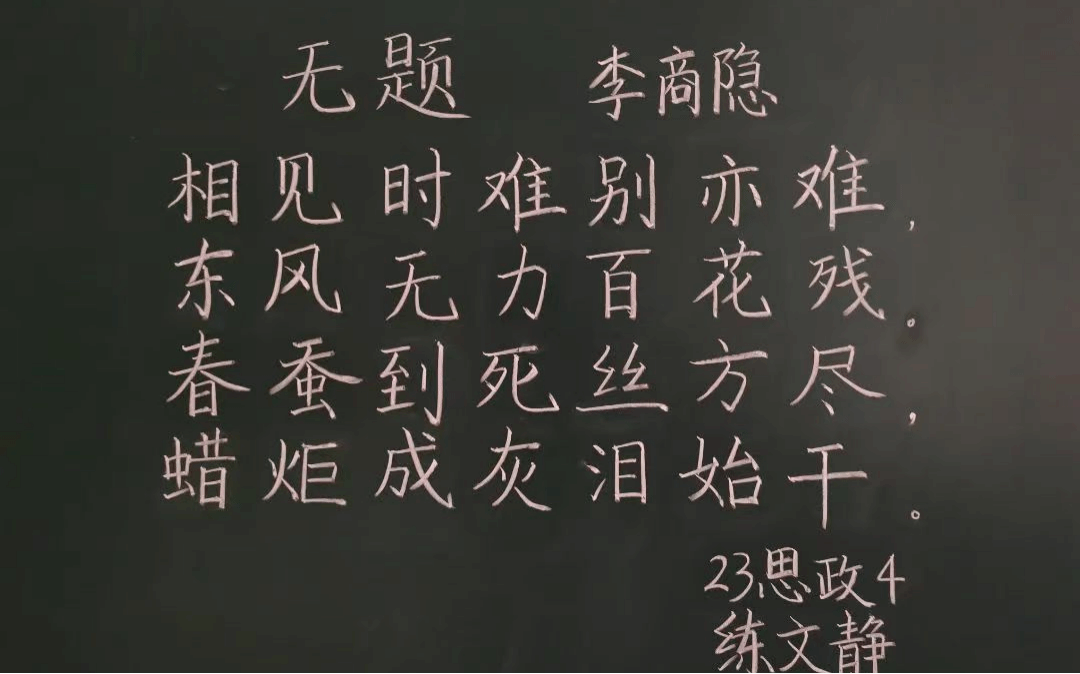 无题 李商隐
相见时难别亦难，
东风无力百花残。
春蚕到死丝方尽，
蜡炬成灰泪始干。
23思政4
练文静